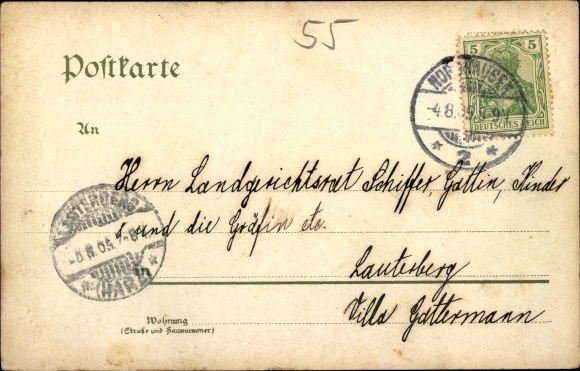 55
Postkarte
5 5
DEUTSCHES REICH
NORDHAUSEN
-4.8.05.8-9V
* 2 *
An
Herrn Landgerichtsrat Schiffer, Gattin, Kinder
und die Gräfin etc.
LAUTERBERG
-5.8.05.7-8V
* (HARZ) *
in
Lauterberg
Villa Gattermann
Wohnung
(Straße und Hausnummer)